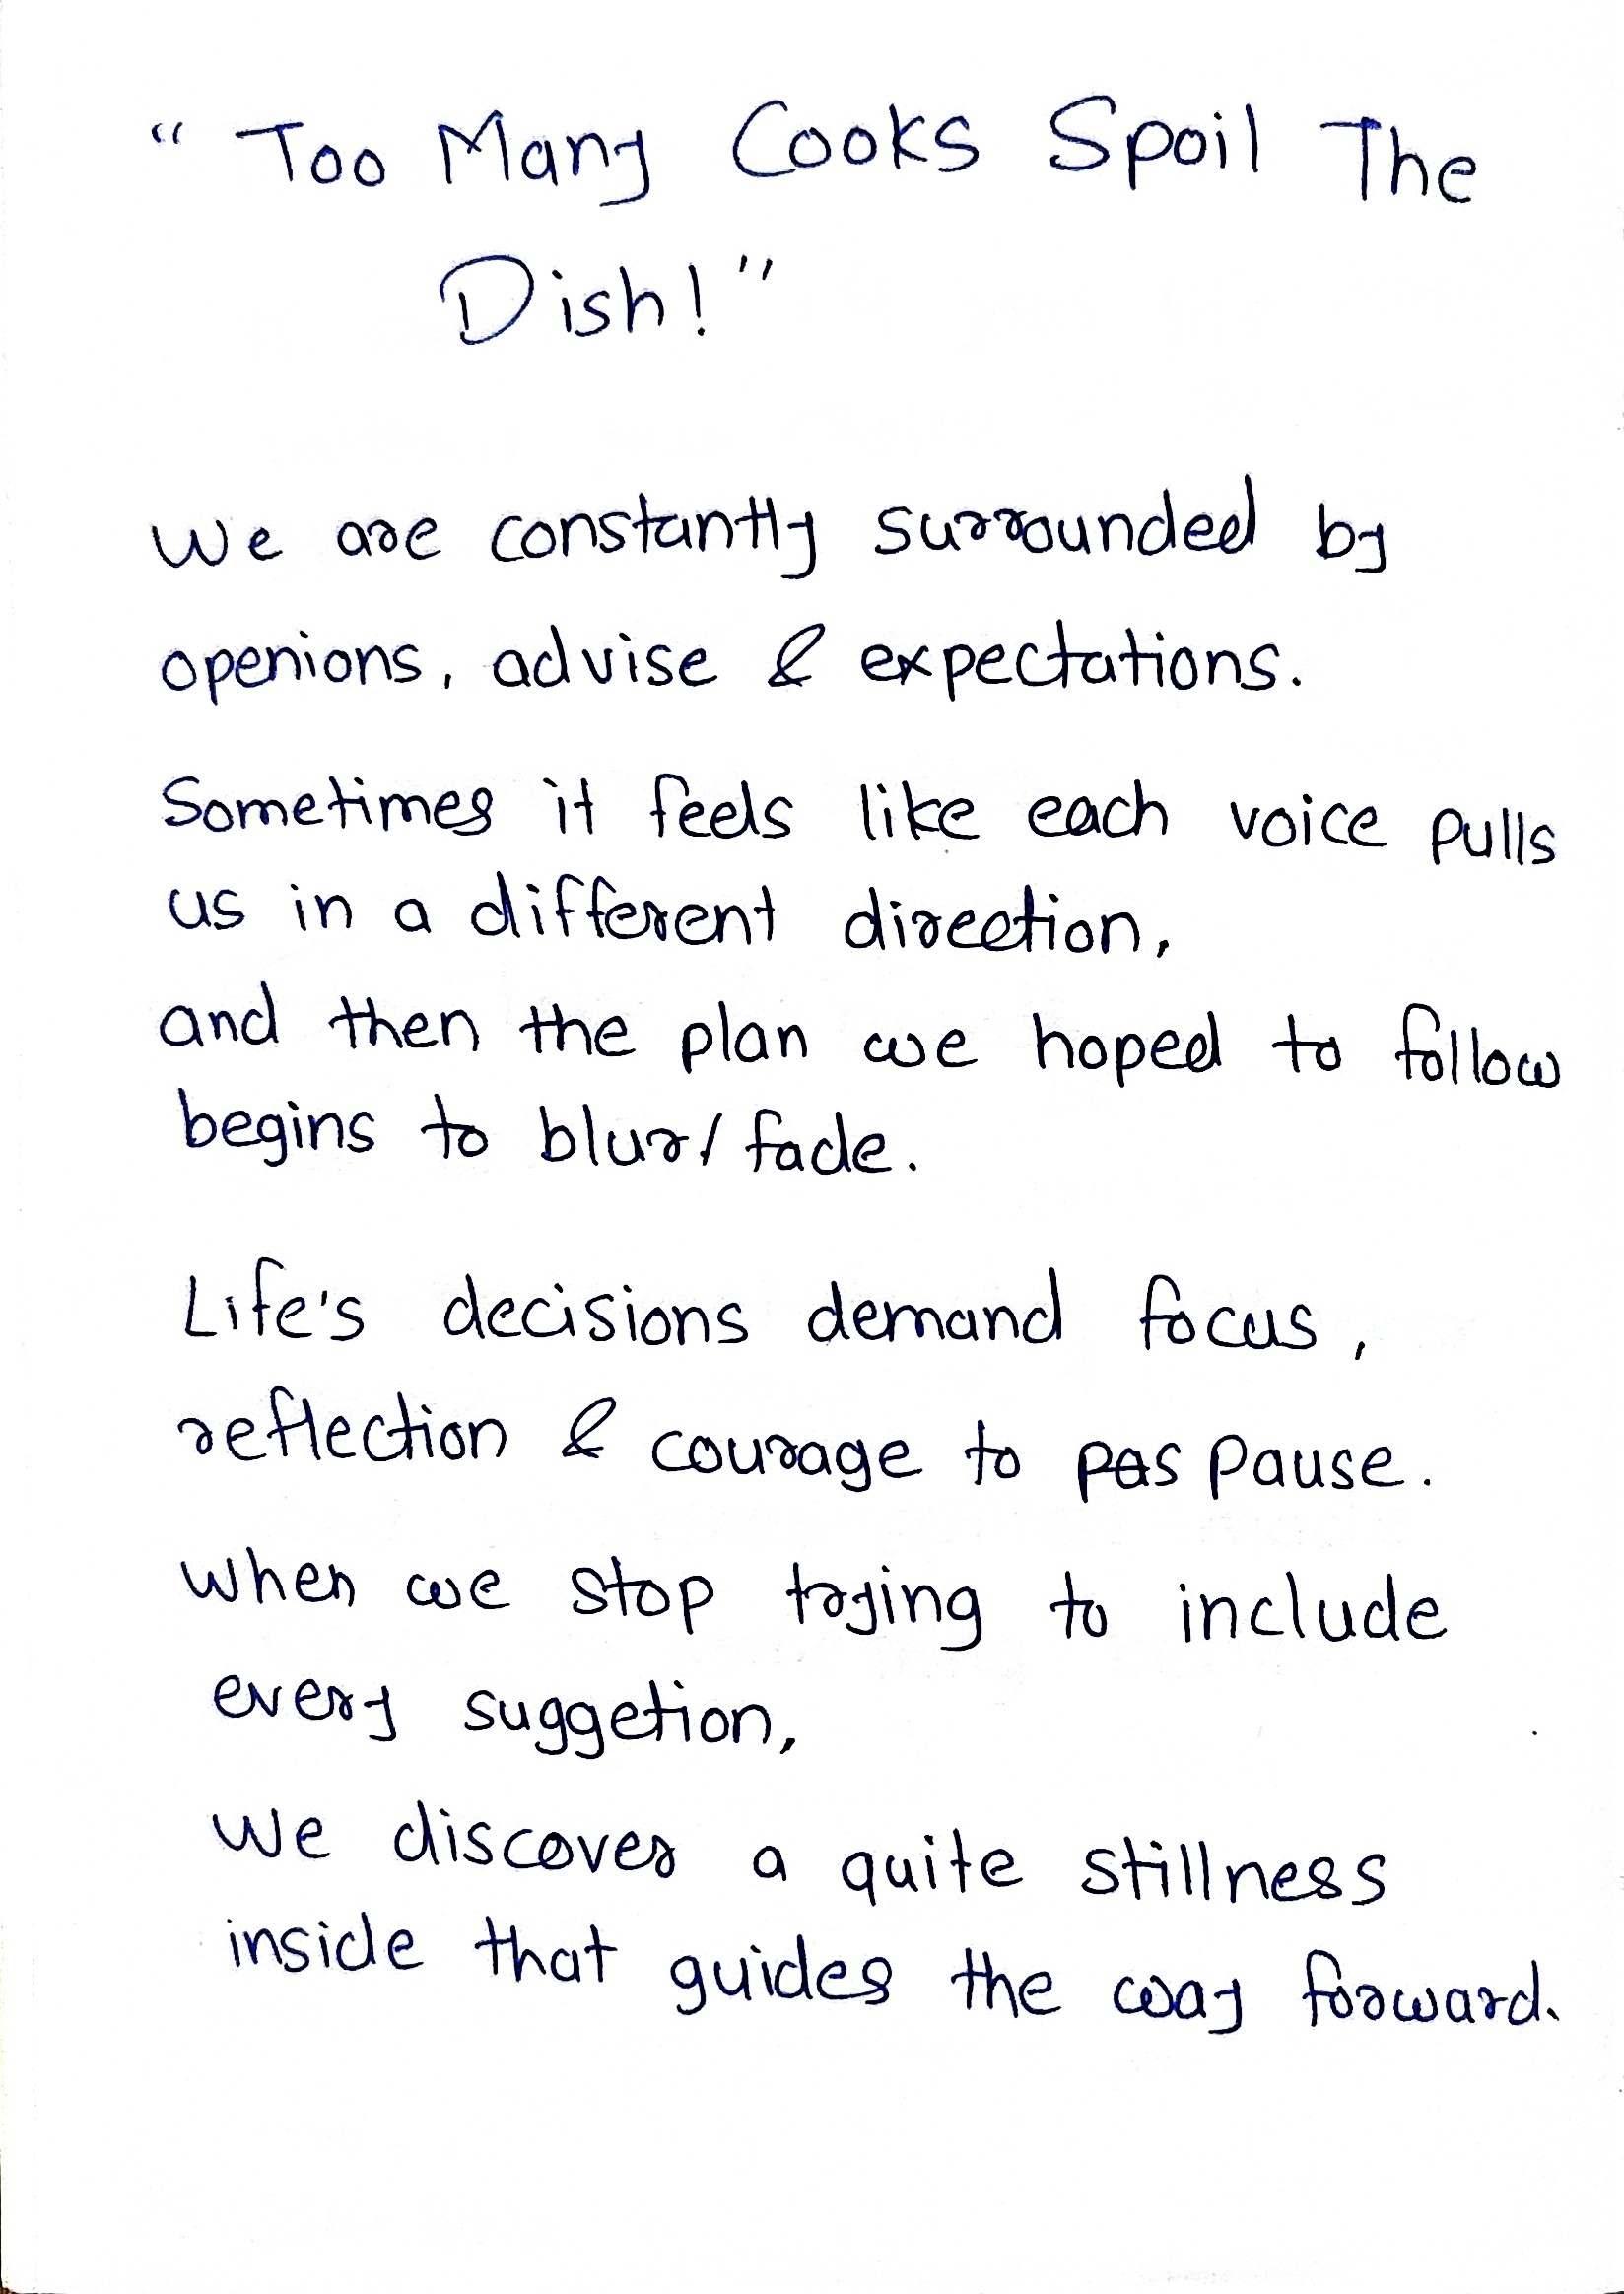 “ Too Many Cooks Spoil The
Dish! ”
We are constantly surrounded by
openions, advise & expectations.
Sometimes it feels like each voice pulls
us in a different direction,
and then the plan we hoped to follow
begins to blur/fade.
Life's decisions demand focus,
reflection & courage to pas pause.
When we stop trying to include
every suggetion,
We discover a quite stillness
inside that guides the way forward.